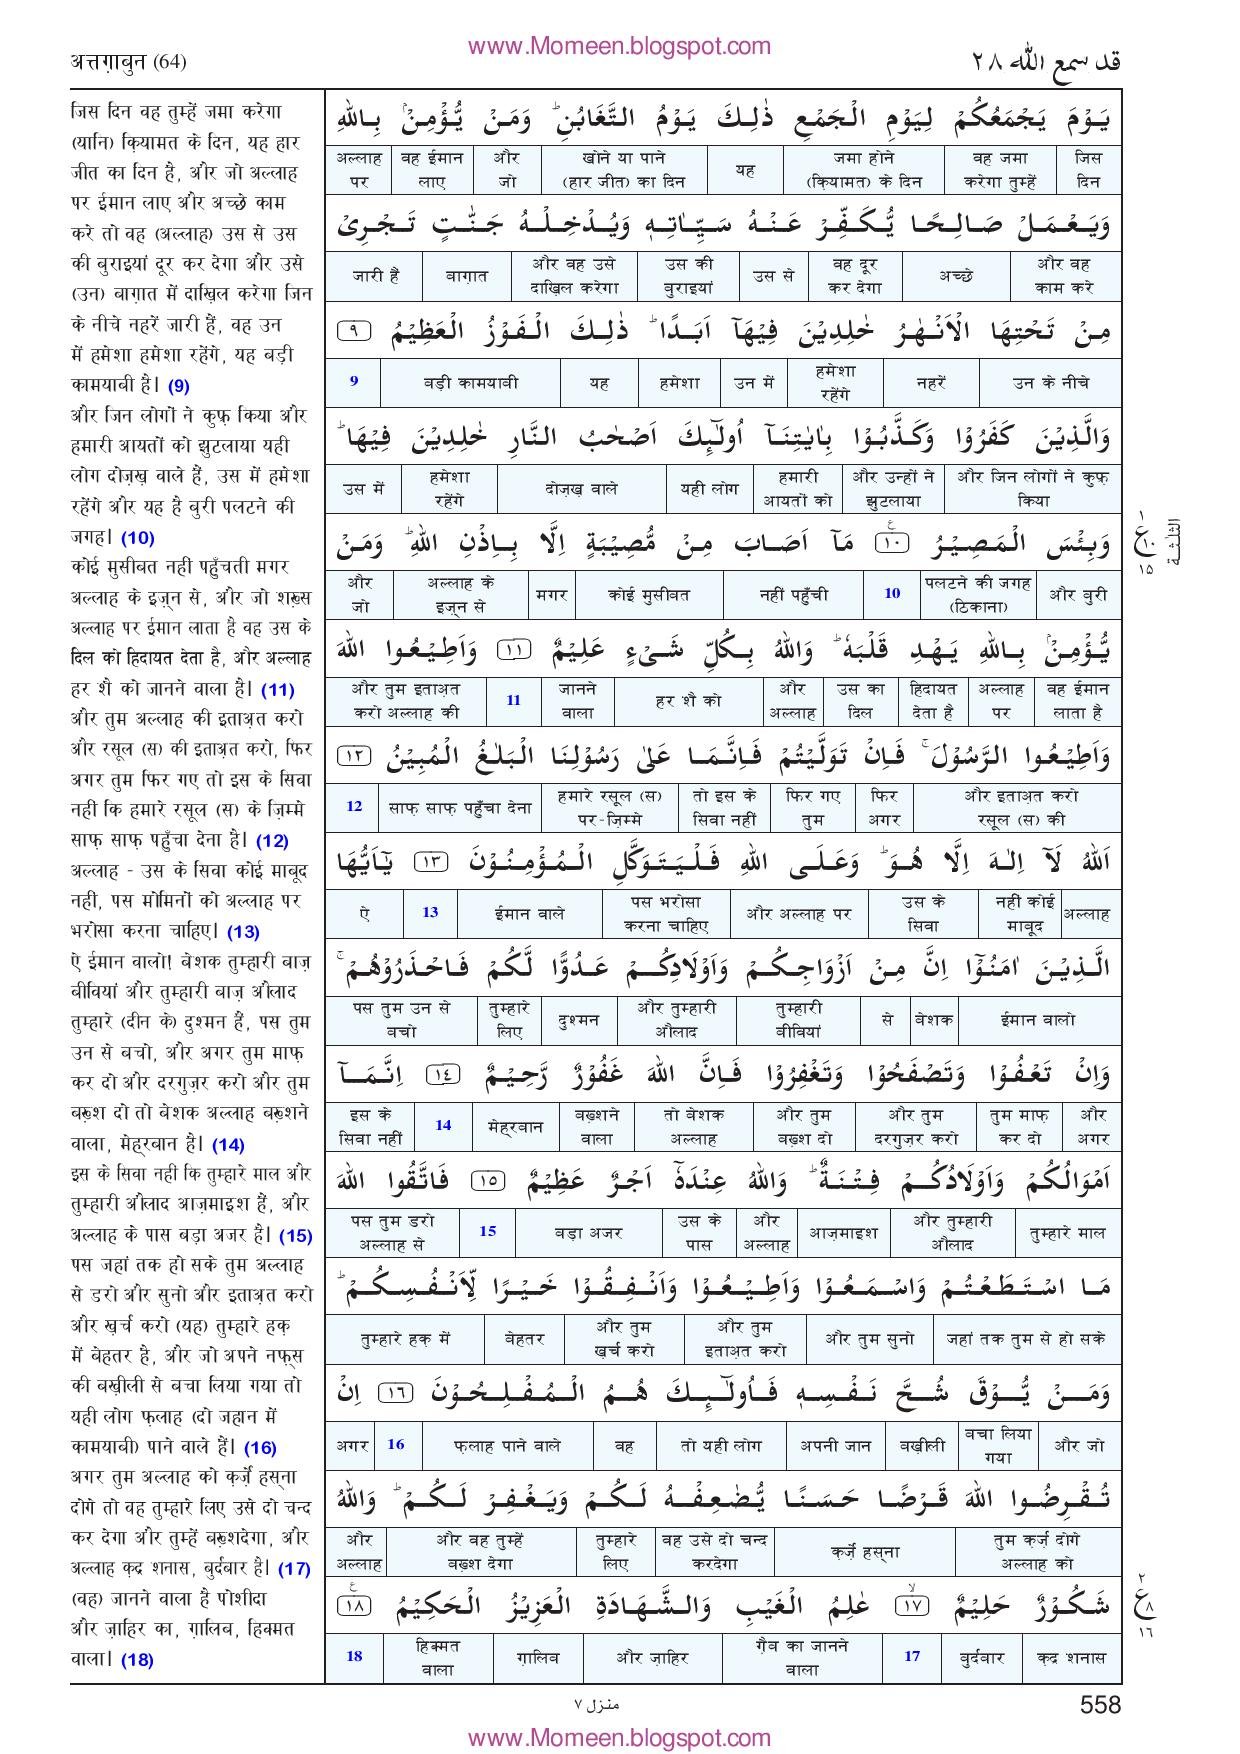 www.Momeen.blogspot.com
अत्तग़ाबुन (64)
قد سمع الله ٢٨
जिस दिन वह तुम्हें जमा करेगा
(यानि) क़ियामत के दिन, यह हार
जीत का दिन है, और जो अल्लाह
पर ईमान लाए और अच्छे काम
करे तो वह (अल्लाह) उस से उस
की बुराइयां दूर कर देगा और उसे
(उन) बाग़ात में दाख़िल करेगा जिन
के नीचे नहरें जारी हैं, वह उन
में हमेशा हमेशा रहेंगे, यह बड़ी
कामयाबी है। (9)
और जिन लोगों ने कुफ़ किया और
हमारी आयतों को झुटलाया यही
लोग दोज़ख़ वाले हैं, उस में हमेशा
रहेंगे और यह है बुरी पलटने की
जगह। (10)
कोई मुसीबत नहीं पहुँचती मगर
अल्लाह के इज़्न से, और जो शख़्स
अल्लाह पर ईमान लाता है वह उस के
दिल को हिदायत देता है, और अल्लाह
हर शै को जानने वाला है। (11)
और तुम अल्लाह की इताअ़त करो
और रसूल (स) की इताअ़त करो, फिर
अगर तुम फिर गए तो इस के सिवा
नहीं कि हमारे रसूल (स) के ज़िम्मे
साफ़ साफ़ पहुँचा देना है। (12)
अल्लाह - उस के सिवा कोई माबूद
नहीं, पस मोमिनों को अल्लाह पर
भरोसा करना चाहिए। (13)
ऐ ईमान वालो! बेशक तुम्हारी बाज़
बीवियां और तुम्हारी बाज़ औलाद
तुम्हारे (दीन के) दुश्मन हैं, पस तुम
उन से बचो, और अगर तुम माफ़
कर दो और दरगुज़र करो और तुम
बख़्श दो तो बेशक अल्लाह बख़्शने
वाला, मेहरबान है। (14)
इस के सिवा नहीं कि तुम्हारे माल और
तुम्हारी औलाद आज़माइश हैं, और
अल्लाह के पास बड़ा अजर है। (15)
पस जहां तक हो सके तुम अल्लाह
से डरो और सुनो और इताअ़त करो
और ख़र्च करो (यह) तुम्हारे हक़
में बेहतर है, और जो अपने नफ़्स
की बख़ीली से बचा लिया गया तो
यही लोग फ़लाह (दो जहान में
कामयाबी) पाने वाले हैं। (16)
अगर तुम अल्लाह को क़र्ज़े हस्ना
दोगे तो वह तुम्हारे लिए उसे दो चन्द
कर देगा और तुम्हें बख़्शदेगा, और
अल्लाह क़द्र शनास, बुर्दबार है। (17)
(वह) जानने वाला है पोशीदा
और ज़ाहिर का, ग़ालिब, हिक्मत
वाला। (18)
يَوْمَ يَجْمَعُكُمْ لِيَوْمِ الْجَمْعِ ذٰلِكَ يَوْمُ التَّغَابُنِ ؕ وَمَنْ يُّؤْمِنْۢ بِاللّٰهِ
जिस दिन | वह जमा करेगा तुम्हें | जमा होने (क़ियामत) के दिन | यह | खोने या पाने (हार जीत) का दिन | और जो | वह ईमान लाए | अल्लाह पर
وَيَعْمَلْ صَالِحًا يُّكَفِّرْ عَنْهُ سَيِّاٰتِهٖ وَيُدْخِلْهُ جَنّٰتٍ تَجْرِىْ
और वह काम करे | अच्छे | वह दूर कर देगा | उस से | उस की बुराइयां | और वह उसे दाख़िल करेगा | बाग़ात | जारी हैं
مِنْ تَحْتِهَا الْاَنْهٰرُ خٰلِدِيْنَ فِيْهَآ اَبَدًا ؕ ذٰلِكَ الْفَوْزُ الْعَظِيْمُ ٩
उन के नीचे | नहरें | हमेशा रहेंगे | उन में | हमेशा | यह | बड़ी कामयाबी | 9
وَالَّذِيْنَ كَفَرُوْا وَكَذَّبُوْا بِاٰيٰتِنَآ اُولٰٓئِكَ اَصْحٰبُ النَّارِ خٰلِدِيْنَ فِيْهَا ؕ
और जिन लोगों ने कुफ़ किया | और उन्हों ने झुटलाया | हमारी आयतों को | यही लोग | दोज़ख़ वाले | हमेशा रहेंगे | उस में
وَبِئْسَ الْمَصِيْرُ ١٠ مَآ اَصَابَ مِنْ مُّصِيْبَةٍ اِلَّا بِاِذْنِ اللّٰهِ ؕ وَمَنْ
और बुरी | पलटने की जगह (ठिकाना) | 10 | नहीं पहुँची | कोई मुसीबत | मगर | अल्लाह के इज़्न से | और जो
يُّؤْمِنْۢ بِاللّٰهِ يَهْدِ قَلْبَهٗ ؕ وَاللّٰهُ بِكُلِّ شَىْءٍ عَلِيْمٌ ١١ وَاَطِيْعُوا اللّٰهَ
वह ईमान लाता है | अल्लाह पर | हिदायत देता है | उस का दिल | और अल्लाह | हर शै को | जानने वाला | 11 | और तुम इताअ़त करो अल्लाह की
وَاَطِيْعُوا الرَّسُوْلَ ۚ فَاِنْ تَوَلَّيْتُمْ فَاِنَّمَا عَلٰى رَسُوْلِنَا الْبَلٰغُ الْمُبِيْنُ ١٢
और इताअ़त करो रसूल (स) की | फिर अगर | फिर गए तुम | तो इस के सिवा नहीं | हमारे रसूल (स) पर-ज़िम्मे | साफ़ साफ़ पहुँचा देना | 12
اَللّٰهُ لَآ اِلٰهَ اِلَّا هُوَ ؕ وَعَلَى اللّٰهِ فَلْيَتَوَكَّلِ الْمُؤْمِنُوْنَ ١٣ يٰٓاَيُّهَا
अल्लाह | नहीं कोई माबूद | उस के सिवा | और अल्लाह पर | पस भरोसा करना चाहिए | ईमान वाले | 13 | ऐ
الَّذِيْنَ اٰمَنُوْٓا اِنَّ مِنْ اَزْوَاجِكُمْ وَاَوْلَادِكُمْ عَدُوًّا لَّكُمْ فَاحْذَرُوْهُمْ ۚ
ईमान वालो | बेशक | से | तुम्हारी बीवियां | और तुम्हारी औलाद | दुश्मन | तुम्हारे लिए | पस तुम उन से बचो
وَاِنْ تَعْفُوْا وَتَصْفَحُوْا وَتَغْفِرُوْا فَاِنَّ اللّٰهَ غَفُوْرٌ رَّحِيْمٌ ١٤ اِنَّمَآ
और अगर | तुम माफ़ कर दो | और तुम दरगुज़र करो | और तुम बख़्श दो | तो बेशक अल्लाह | बख़्शने वाला | मेहरबान | 14 | इस के सिवा नहीं
اَمْوَالُكُمْ وَاَوْلَادُكُمْ فِتْنَةٌ ؕ وَاللّٰهُ عِنْدَهٗٓ اَجْرٌ عَظِيْمٌ ١٥ فَاتَّقُوا اللّٰهَ
तुम्हारे माल | और तुम्हारी औलाद | आज़माइश | और अल्लाह | उस के पास | बड़ा अजर | 15 | पस तुम डरो अल्लाह से
مَا اسْتَطَعْتُمْ وَاسْمَعُوْا وَاَطِيْعُوْا وَاَنْفِقُوْا خَيْرًا لِّاَنْفُسِكُمْ ؕ
जहां तक तुम से हो सके | और तुम सुनो | और तुम इताअ़त करो | और तुम ख़र्च करो | बेहतर | तुम्हारे हक़ में
وَمَنْ يُّوْقَ شُحَّ نَفْسِهٖ فَاُولٰٓئِكَ هُمُ الْمُفْلِحُوْنَ ١٦ اِنْ
और जो | बचा लिया गया | बख़ीली | अपनी जान | तो यही लोग | वह | फ़लाह पाने वाले | 16 | अगर
تُقْرِضُوا اللّٰهَ قَرْضًا حَسَنًا يُّضٰعِفْهُ لَكُمْ وَيَغْفِرْ لَكُمْ ؕ وَاللّٰهُ
तुम क़र्ज़ दोगे अल्लाह को | क़र्ज़े हस्ना | वह उसे दो चन्द करदेगा | तुम्हारे लिए | और वह तुम्हें बख़्श देगा | और अल्लाह
شَكُوْرٌ حَلِيْمٌ ١٧ عٰلِمُ الْغَيْبِ وَالشَّهَادَةِ الْعَزِيْزُ الْحَكِيْمُ ١٨
क़द्र शनास | बुर्दबार | 17 | ग़ैब का जानने वाला | और ज़ाहिर | ग़ालिब | हिक्मत वाला | 18
١ ع ١٠ ١٥ الثلثة
٢ ع ٨ ١٦
منزل ٧
558
www.Momeen.blogspot.com